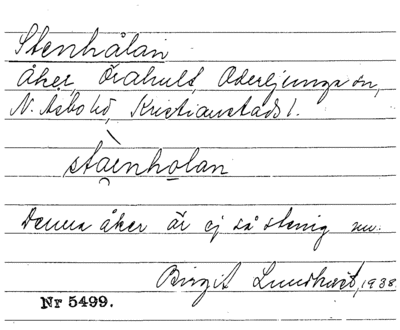 Stenhålan
åker, Örahult, Oderljunga sn,
N. Åsbo hd, Kristianstads l.
stàenholan
Denna åker är ej så stenig nu.
Birgit Lundkvist, 1938.
Nr 5499.